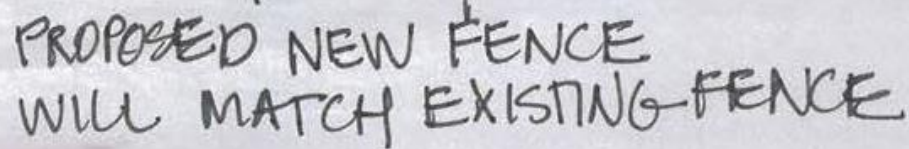 PROPOSED NEW FENCE
WILL MATCH EXISTING FENCE